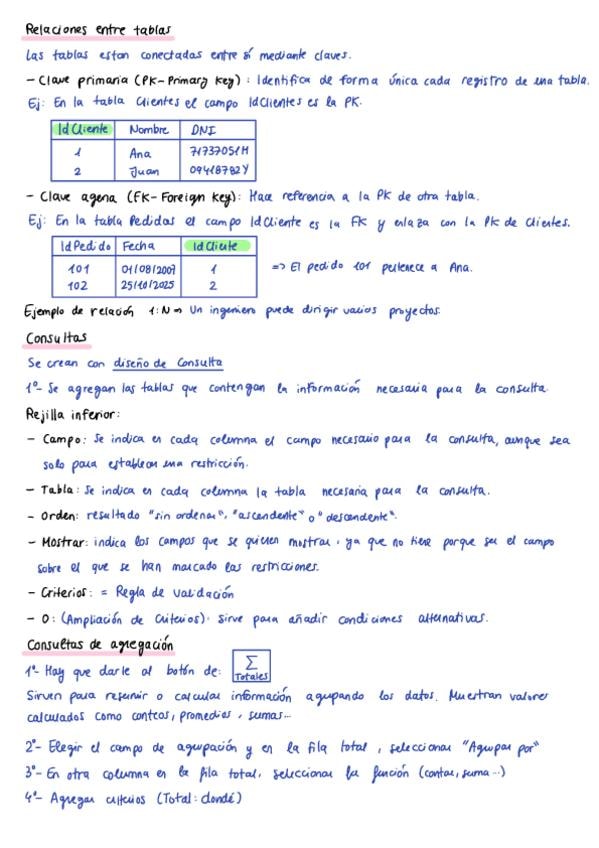 Relaciones entre tablas
Las tablas estan conectadas entre sí mediante claves.
- Clave primaria (PK-Primary Key): Identifica de forma única cada registro de una tabla.
Ej: En la tabla Clientes el campo IdClientes es la PK.
IdCliente Nombre DNI
1 Ana 71737051H
2 Juan 09418782Y
- Clave agena (FK-Foreign Key): Hace referencia a la PK de otra tabla.
Ej: En la tabla Pedidos el campo IdCliente es la FK y enlaza con la PK de Clientes.
IdPedido Fecha IdCliente
101 01/08/2007 1 => El pedido 101 pertenece a Ana.
102 25/10/2025 2
Ejemplo de relación 1:N => Un ingeniero puede dirigir varios proyectos.
Consultas
Se crean con diseño de Consulta
1º- Se agregan las tablas que contengan la información necesaria para la consulta.
Rejilla inferior:
- Campo: Se indica en cada columna el campo necesario para la consulta, aunque sea
solo para establecer una restricción.
- Tabla: Se indica en cada columna la tabla necesaria para la consulta.
- Orden: resultado "sin ordenar", "ascendente" o "descendente".
- Mostrar: indica los campos que se quieren mostrar, ya que no tiene porque ser el campo
sobre el que se han marcado las restricciones.
- Criterios: = Regla de Validación
- O: (Ampliación de Criterios). Sirve para añadir condiciones alternativas.
Consultas de agregación
1º- Hay que darle al botón de: Σ
Totales
Sirven para resumir o calcular información agrupando los datos. Muestran valores
calculados como conteos, promedios, sumas...
2º- Elegir el campo de agrupación y en la fila total, seleccionar "Agrupar por"
3º- En otra columna en la fila total, seleccionar la función (contar, suma...)
4º- Agregar criterios (Total: dondé)